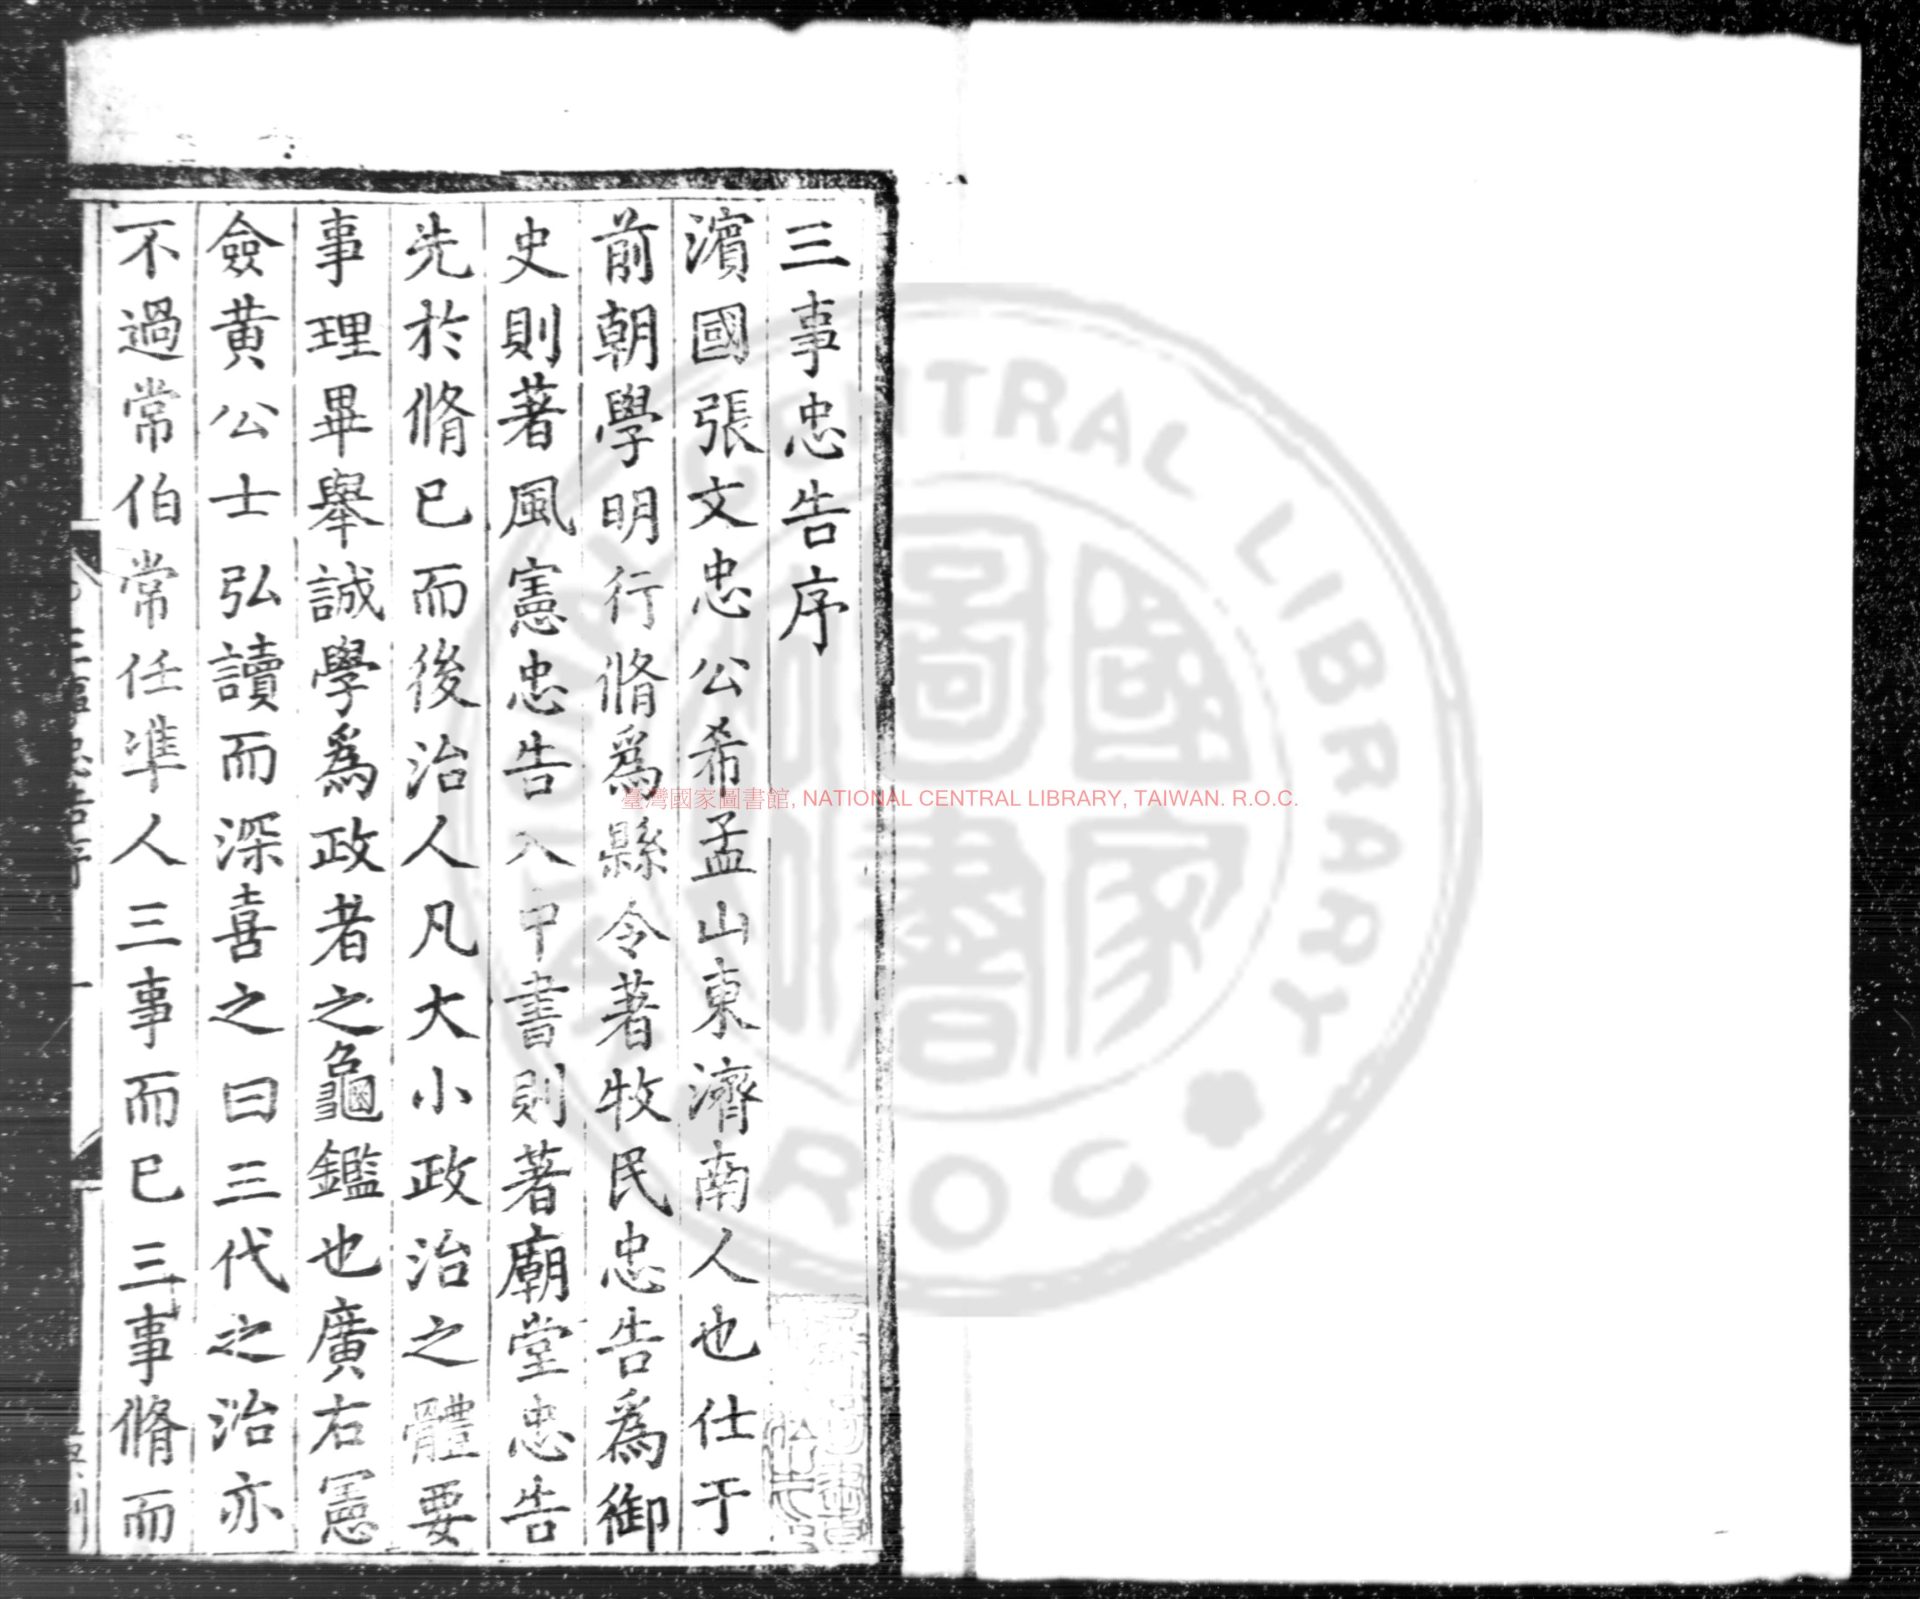 三事忠告序
濱國張文忠公希孟山東濟南人也仕于
前朝學明行脩爲縣令著牧民忠告爲御
史則著風憲忠告入中書則著廟堂忠告
先於脩已而後治人凡大小政治之體要
事理畢舉誠學爲政者之龜鑑也廣右憲
僉黄公士弘讀而深喜之曰三代之治亦
不過常伯常任準人三事而已三事脩而
三事忠告序
一
臺灣國家圖書館, NATIONAL CENTRAL LIBRARY, TAIWAN. R.O.C.
NATIONAL CENTRAL LIBRARY
R.O.C.
國家圖書